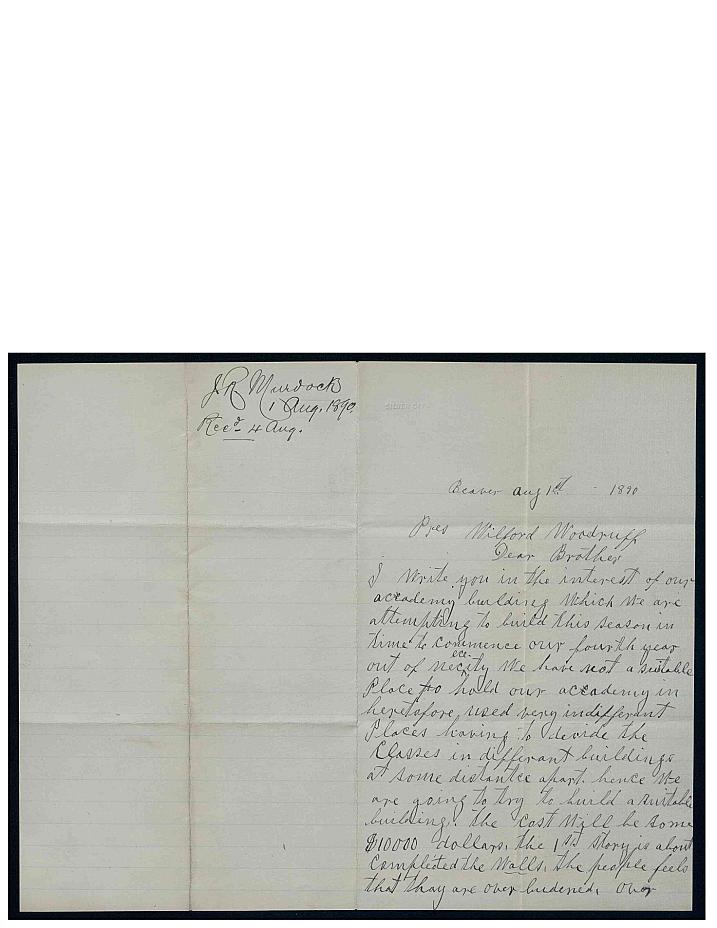 J R Murdock
1 Aug. 1890.
Recd 4 Aug.
Beaver aug 1st - 1890
Pres Wilford Woodruff
Dear Brother
I Write you in the interest of our
accademy building Which We are
attempting to build this season in
time to commence our fourth year
out of necity We have not a suitable
Place to hold our accademy in
heretofore used very indifferant
Places having to devide the
Classes in differant buildings
at some distantce apart. hence We
are going to try to build a suitable
building. the Cost Will be some
$10000 dollars. the 1st Story is about
Completed the Walls. the people feels
that thay are over budened. over